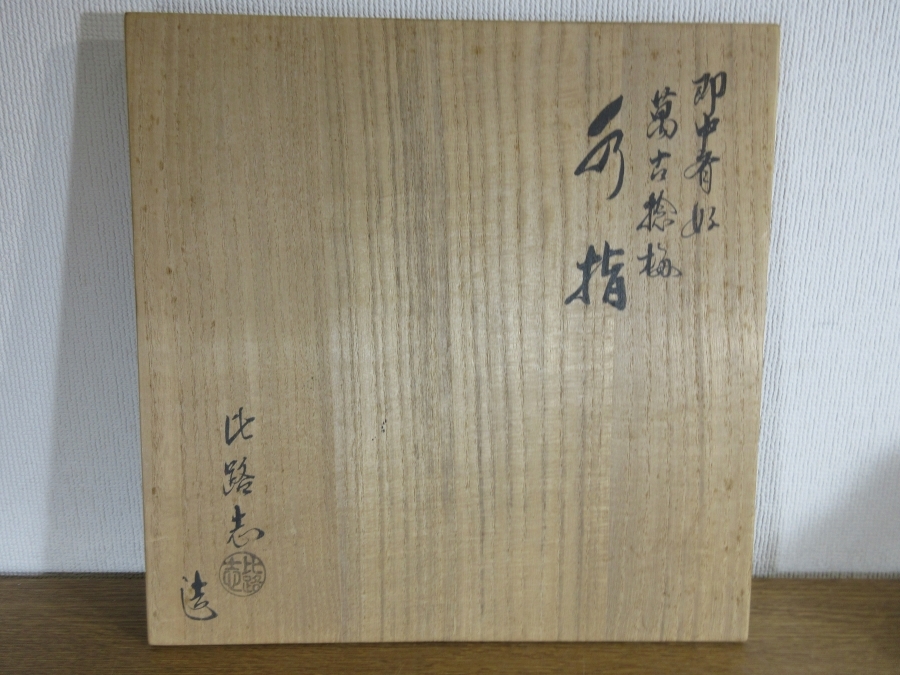 即中斎好
萬古捻梅
水指
比路志
造
比路志